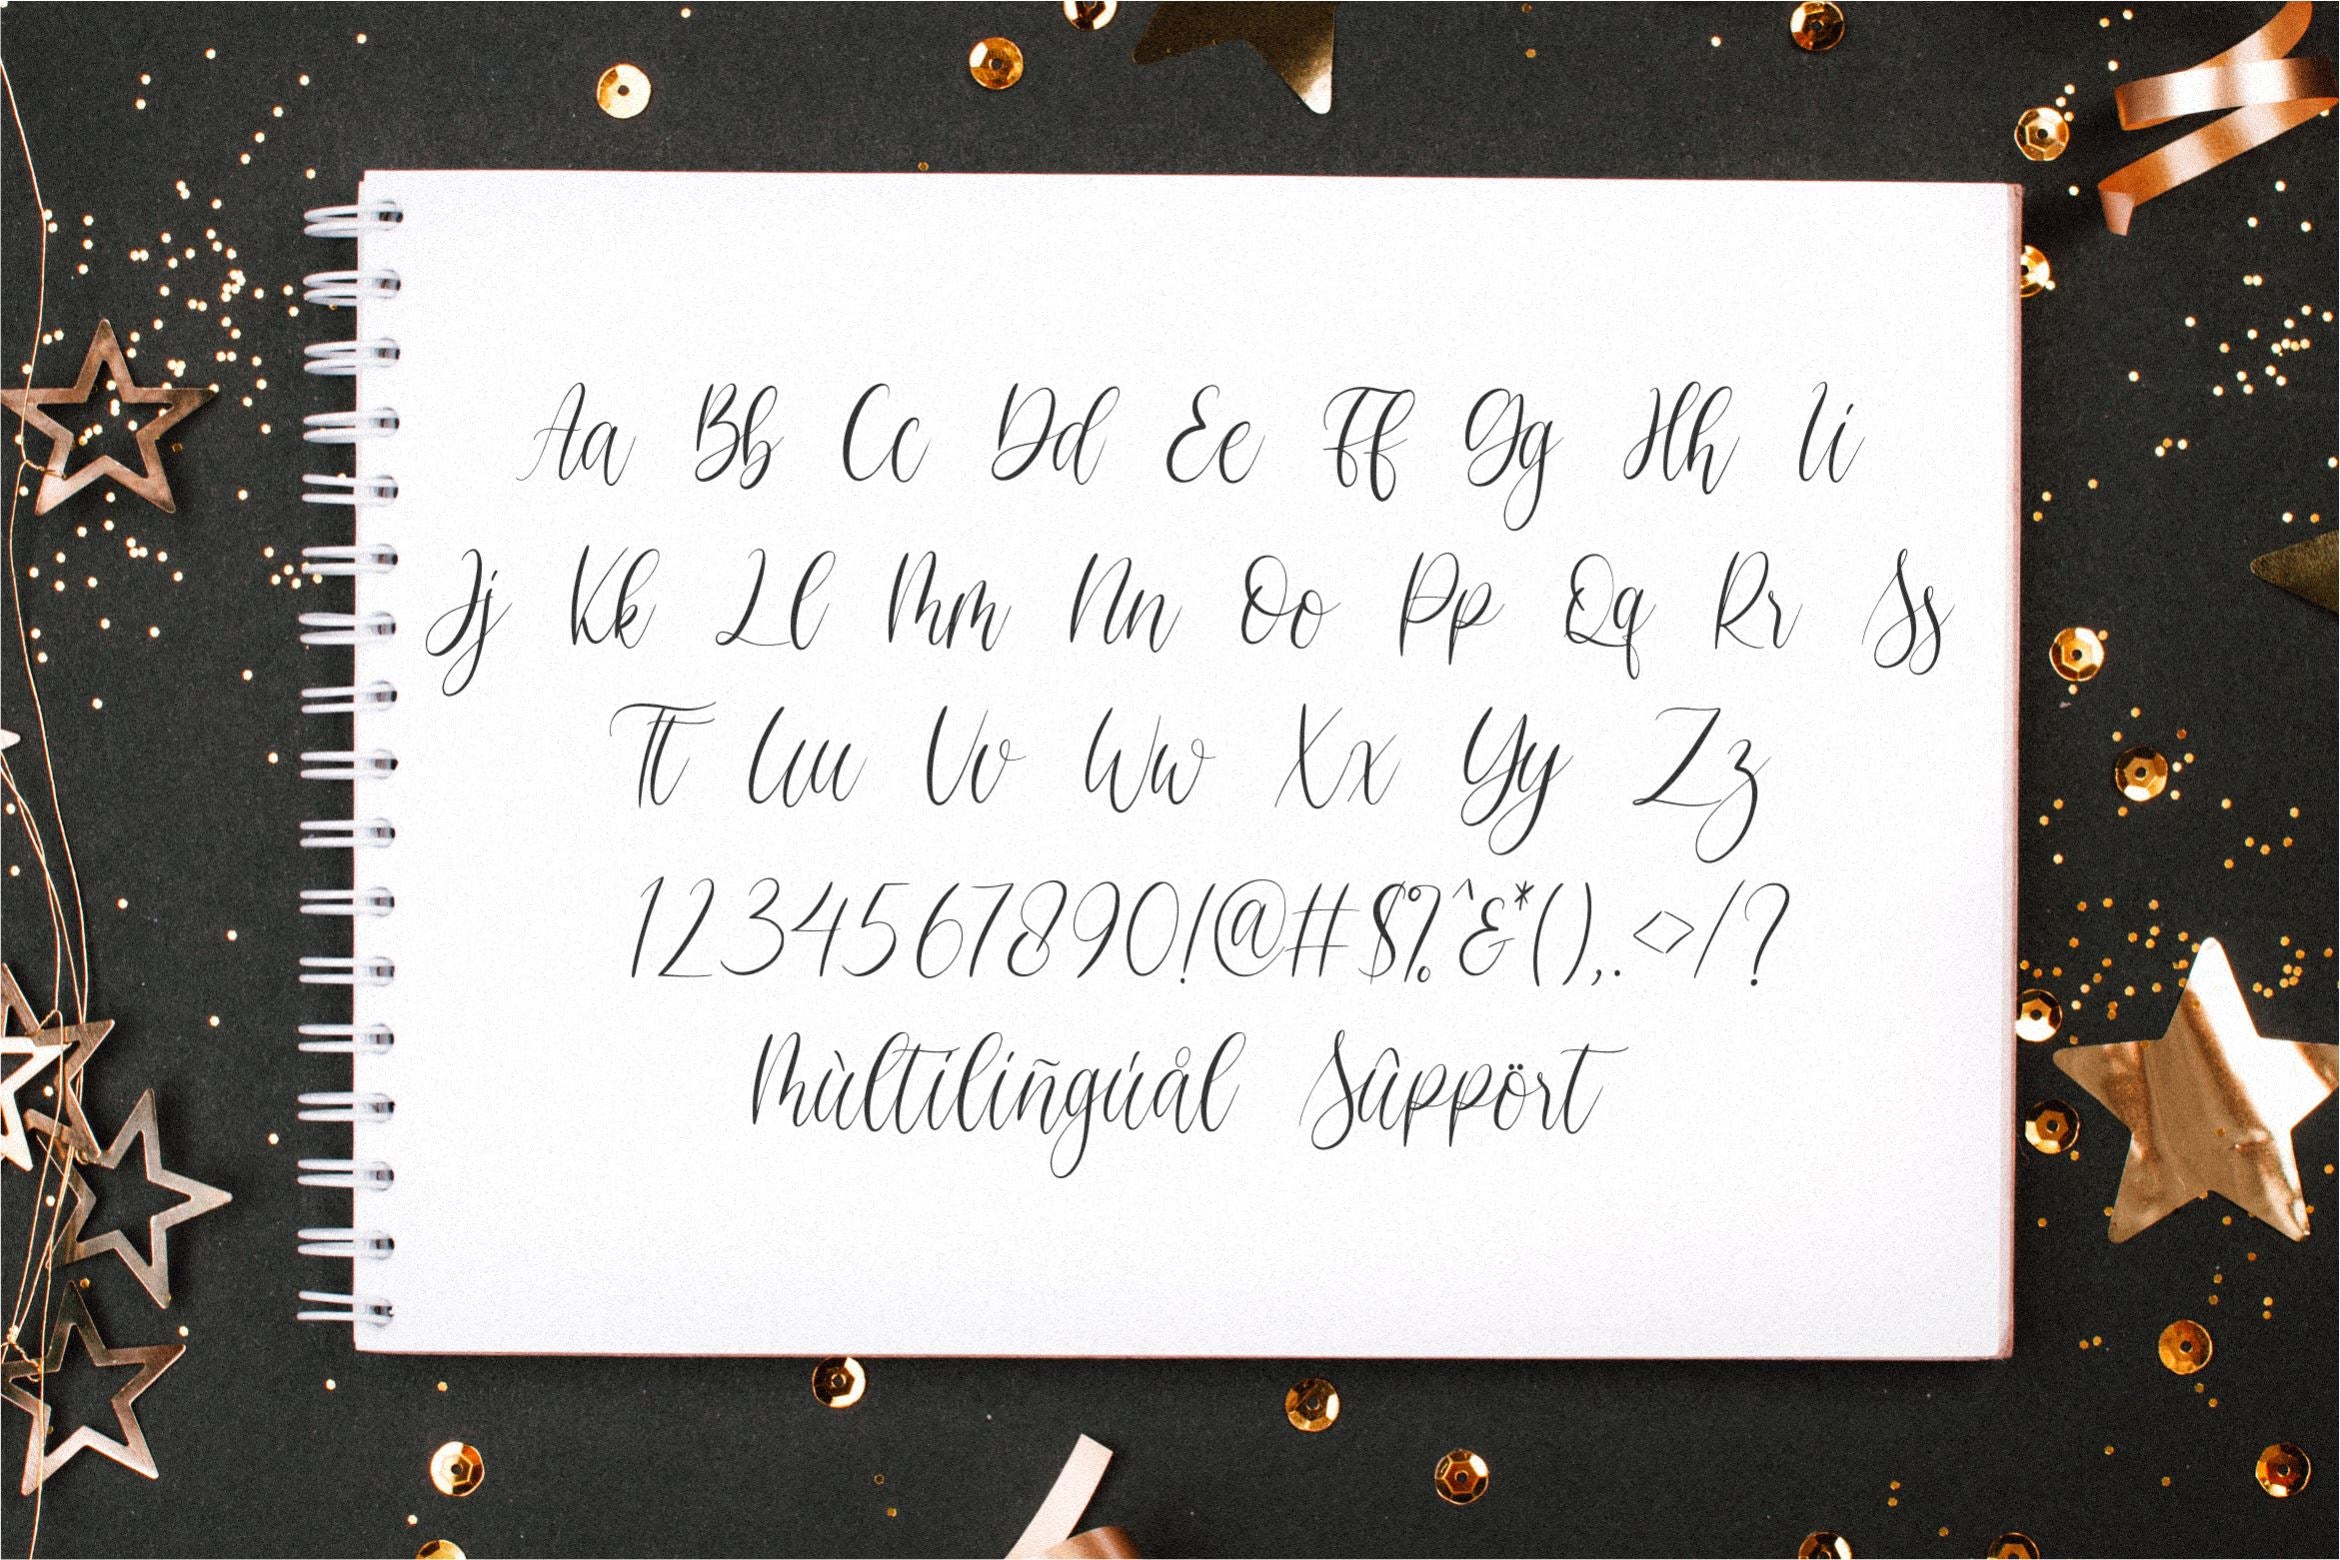 Aa Bb Cc Dd Ee Ff Gg Hh Ii
Jj Kk Ll Mm Nn Oo Pp Qq Rr Ss
Tt Uu Vv Ww Xx Yy Zz
1234567890!@#$%^&*(),.<>/?
Mùltiliñgúål Sûppört